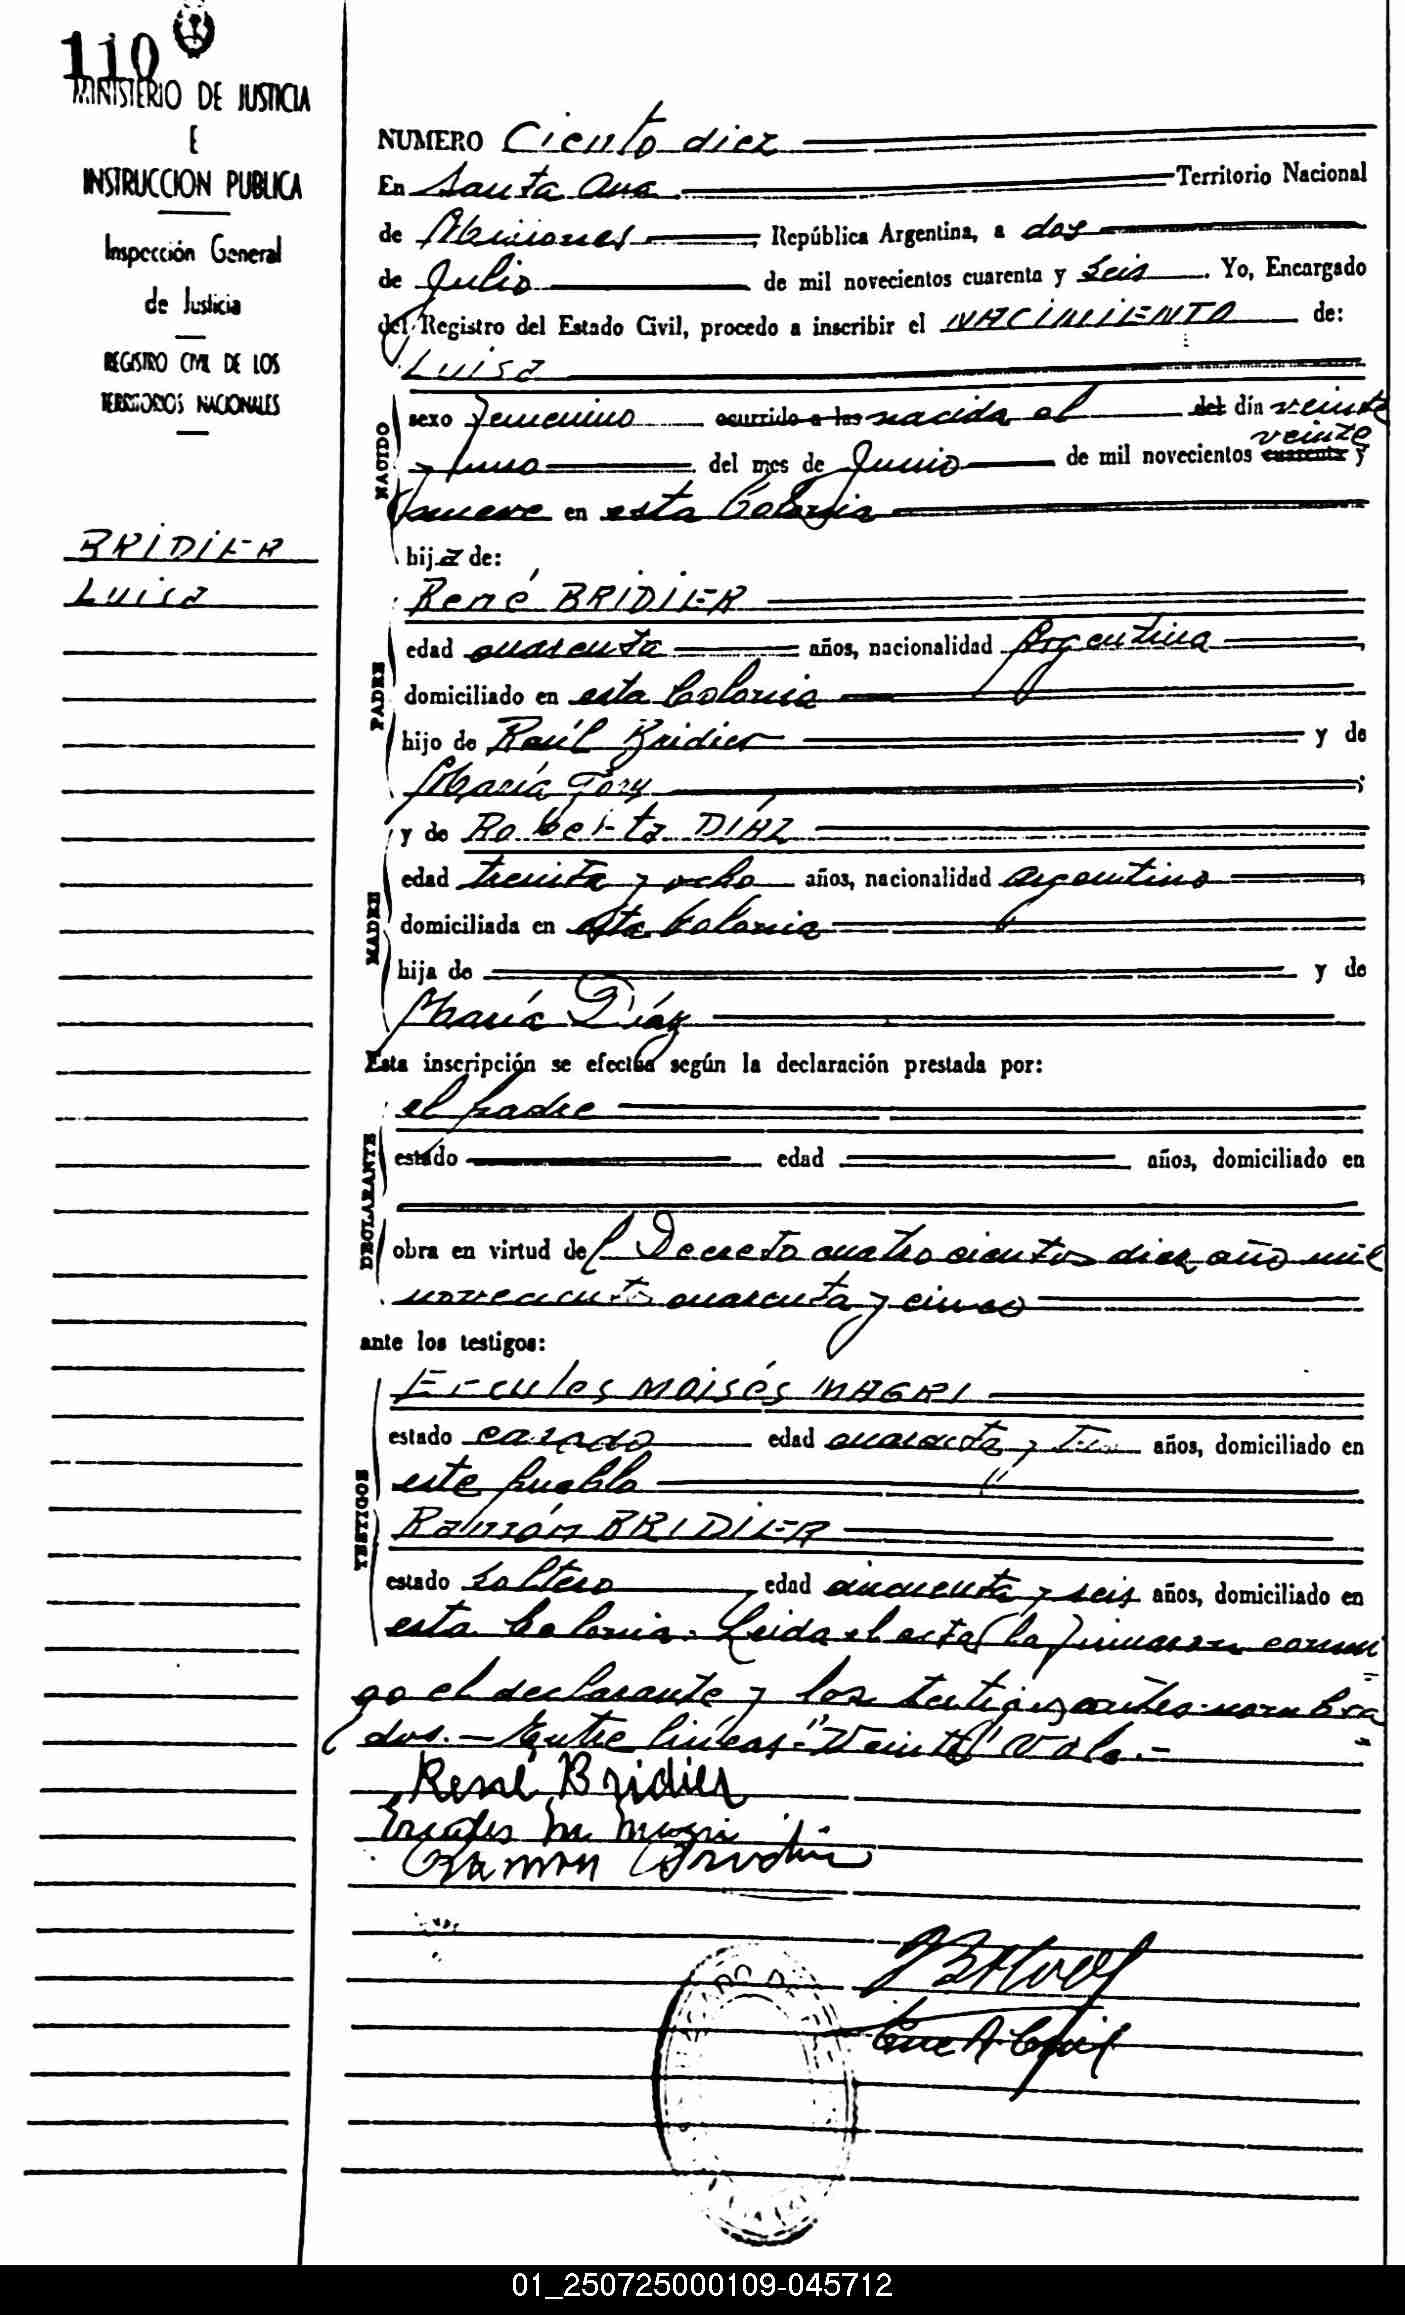 110
MINISTERIO DE JUSTICIA
E
INSTRUCCION PUBLICA
Inspección General
de Justicia
REGISTRO CIVIL DE LOS
TERRITORIOS NACIONALES
BRIDIER
Luisa
NUMERO Ciento diez
En Santa Ana Territorio Nacional
de Misiones, República Argentina, a dos
de Julio de mil novecientos cuarenta y seis. Yo, Encargado
del Registro del Estado Civil, procedo a inscribir el NACIMIENTO de:
Luisa
NACIDO
sexo femenino ocurrido a las nacida el del día veinte
veinte
y uno del mes de Junio de mil novecientos cuarenta y
nueve en esta Colonia
hija de:
PADRE
René BRIDIER
edad cuarenta años, nacionalidad Argentina
domiciliado en esta Colonia
hijo de Raúl Bridier y de
María
MADRE
y de Roberta DIAZ
edad treinta y ocho años, nacionalidad argentina
domiciliada en esta Colonia
hija de y de
María Díaz
Esta inscripción se efectúa según la declaración prestada por:
DECLARANTE
el padre
estado edad años, domiciliado en
obra en virtud del Decreto cuatrocientos diez año mil
novecientos cuarenta y cinco
ante los testigos:
TESTIGOS
Ercules Moisés MAGRI
estado casado edad cuarenta y años, domiciliado en
este pueblo
Ramón BRIDIER
estado soltero edad cincuenta y seis años, domiciliado en
esta Colonia. Leida el acta la firmaron conmi
go el declarante y los testigos antes nombra
dos.- Entre líneas: "Veinte" Vale.-
René Bridier
Ercules M Magri
Ramon Bridier
01_250725000109-045712